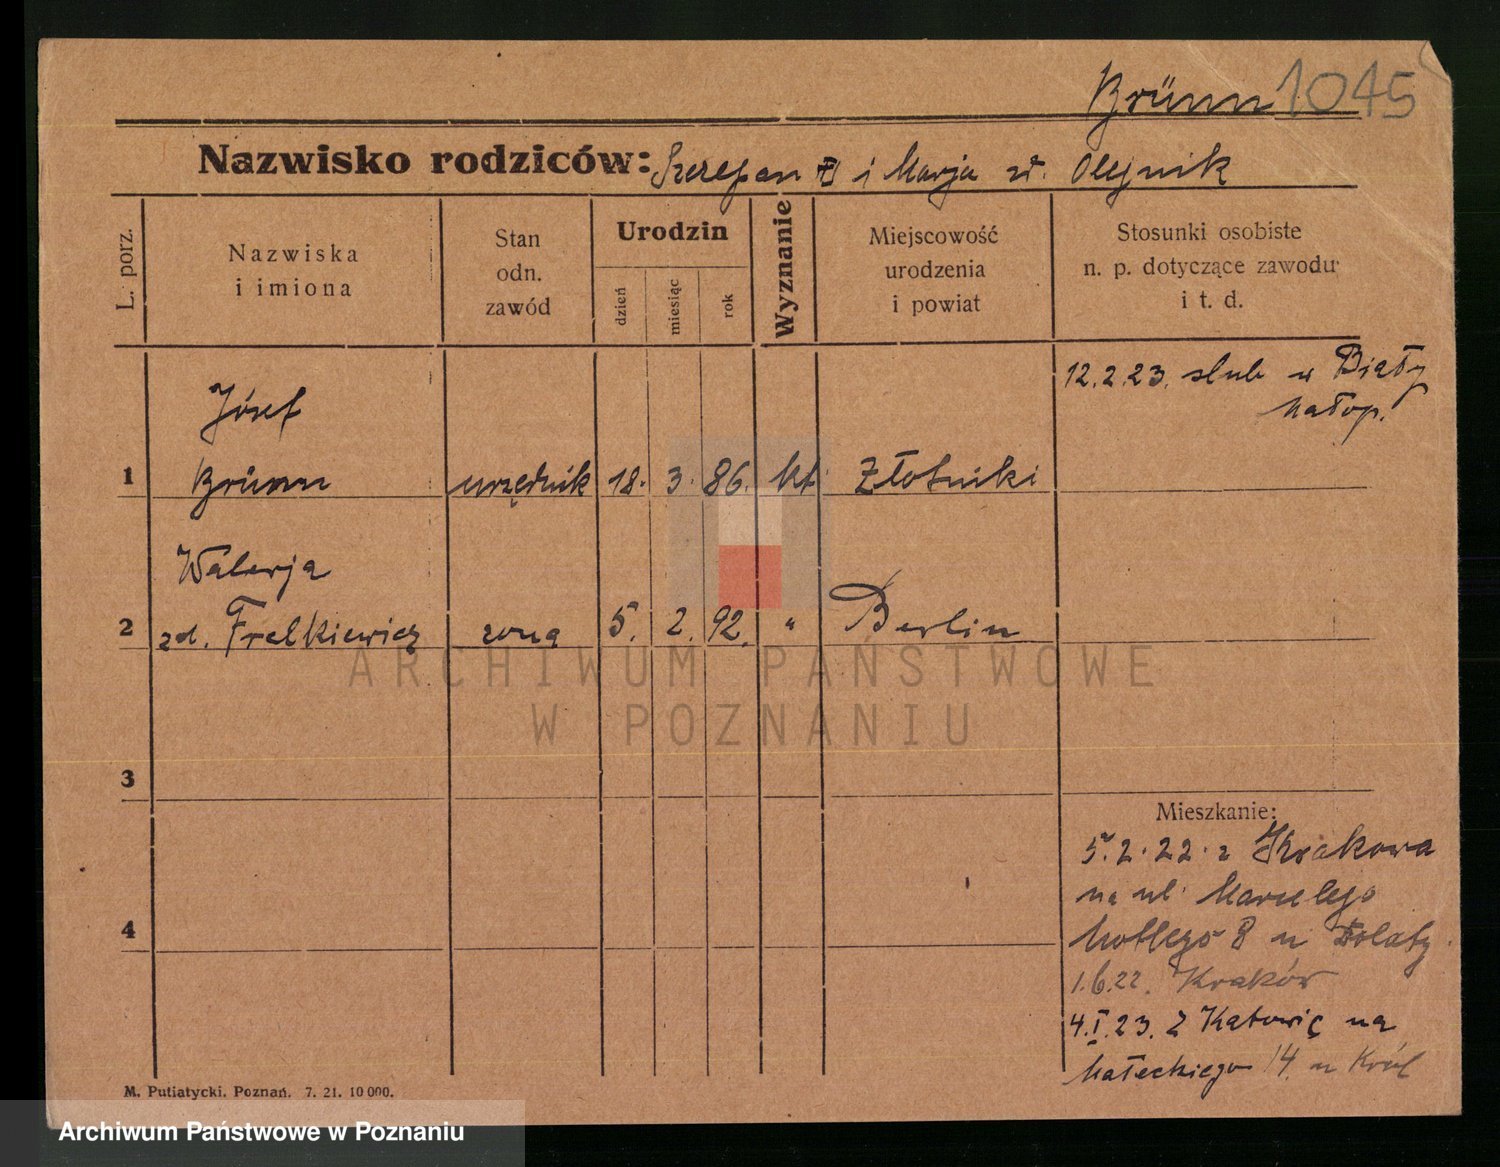 Brünn 1045
Nazwisko rodziców: Szczepan i Marja zd. Olejnik
L. porz.
Nazwiska
i imiona
Stan
odn.
zawód
Urodzin
dzień
miesiąc
rok
Wyznanie
Miejscowość
urodzenia
i powiat
Stosunki osobiste
n. p. dotyczące zawodu
i t. d.
12.2.23. slub w Biały
Małop.
Józef
1 Brünn urzędnik 18. 3. 86. kt Złotniki
Walerja
2 zd. Frelkiewicz żona 5. 2. 92. " Berlin
3
Mieszkanie:
5.2.22. z Krakowa
na ul. Marcelego
Mottego 8 u
4
1.6.22. Kraków
4.I.23. z Katowic na
Małeckiego 14. u Król
M. Putiatycki. Poznań. 7. 21. 10 000.
ARCHIWUM PAŃSTWOWE
W POZNANIU
Archiwum Państwowe w Poznaniu